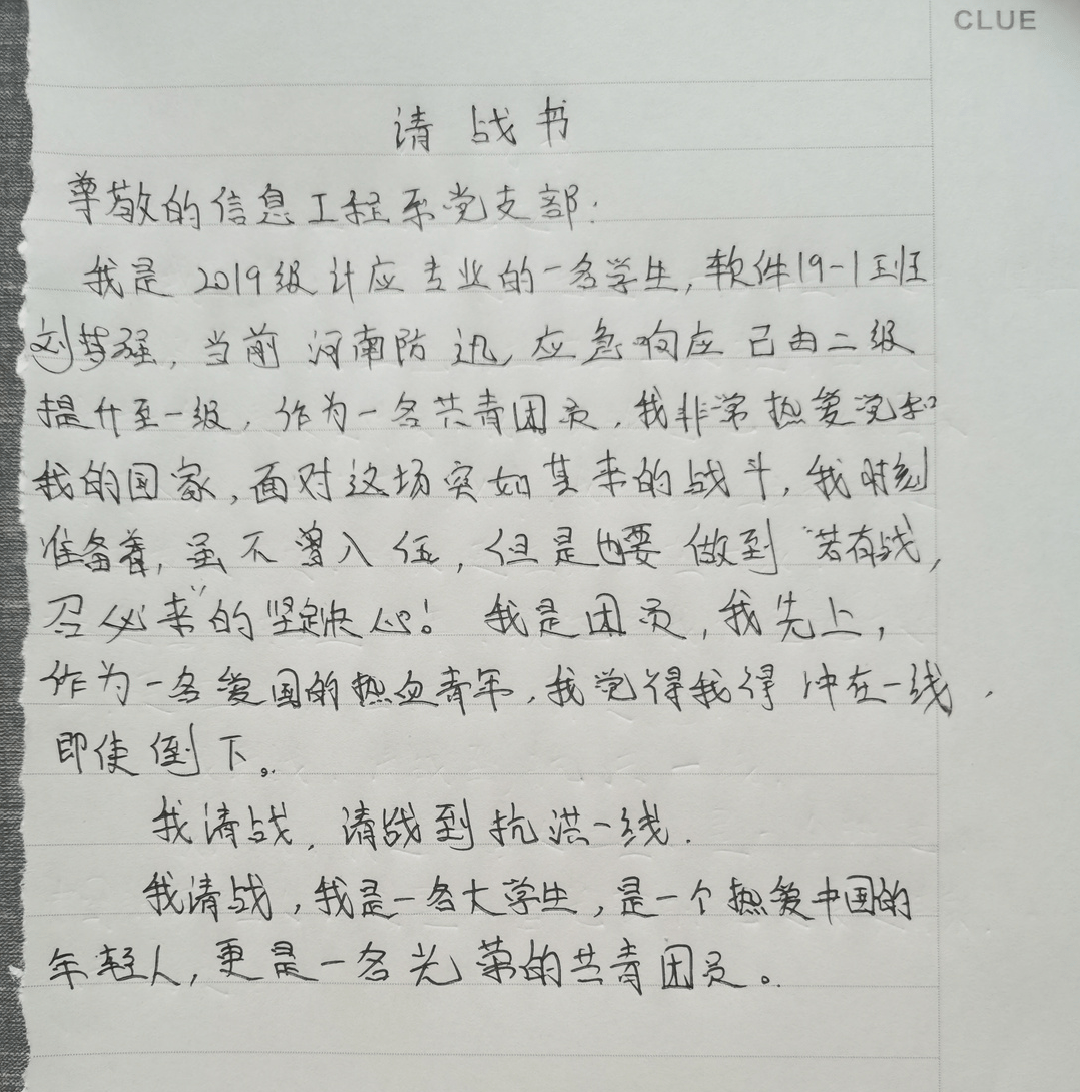 CLUE
请战书
尊敬的信息工程系党支部:
我是2019级计应专业的一名学生,软件19-1班
刘梦强,当前河南防汛,应急响应已由二级
提升至一级,作为一名共青团员,我非常热爱党和
我的国家,面对这场突如其来的战斗,我时刻
准备着,虽不曾入伍,但是也要做到“若有战,
召必来”的坚定决心!我是团员,我先上,
作为一名爱国的热血青年,我觉得我得冲在一线,
即使倒下。
我请战,请战到抗洪一线.
我请战,我是一名大学生,是一个热爱中国的
年轻人,更是一名光荣的共青团员。